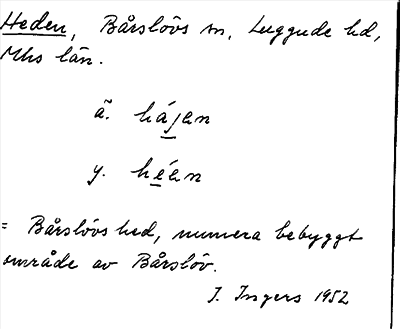 Heden, Bårslövs sn, Luggude hd,
Mhs län.
ã. hájen
y. héen
= Bårslövs hed, numera bebyggt
område av Bårslöv.
I. Ingers 1952